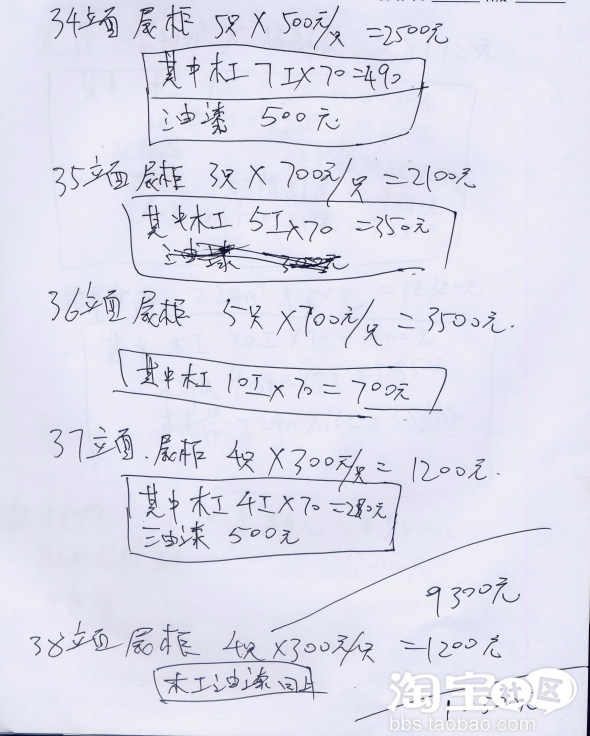 34立面 展柜 5只 X 500元/只 =2500元
其中木工 7工X70=490
油漆 500元
35立面 展柜 3只 X 700元/只 =2100元
其中木工 5工X70 =350元
36立面 展柜 5只 X700元/只 =3500元.
其中木工 10工X70=700元
37立面.展柜 4只 X300元/只= 1200元.
其中木工 4工X70=280元
油漆 500元
9300元
38立面展柜 4只 X300元/只 =1200元
木工油漆
淘宝社区
bbs.taobao.com